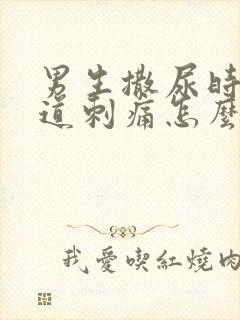 男生撒尿時
道刺痛怎麼
我愛喫紅燒肉